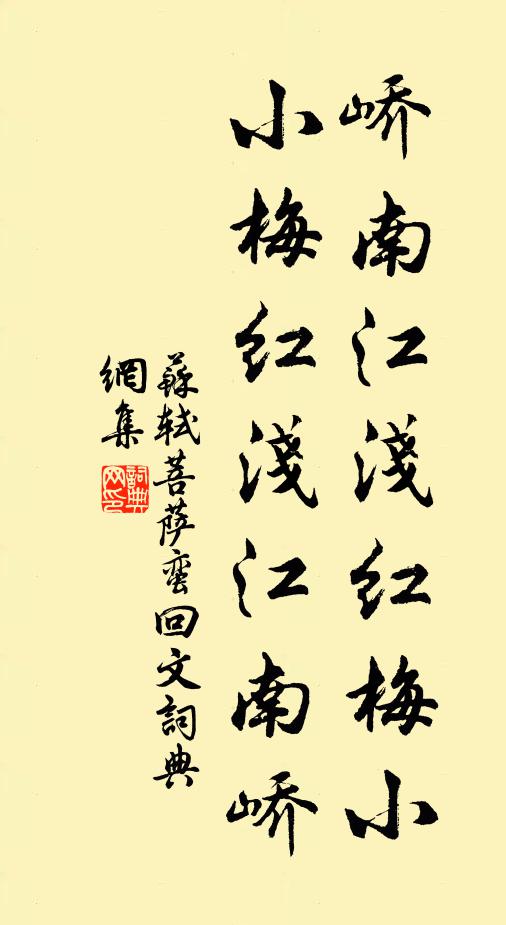 峤南江淺紅梅小
小梅紅淺江南峤
蘇軾菩薩蠻回文詞典
網集
詞典網印